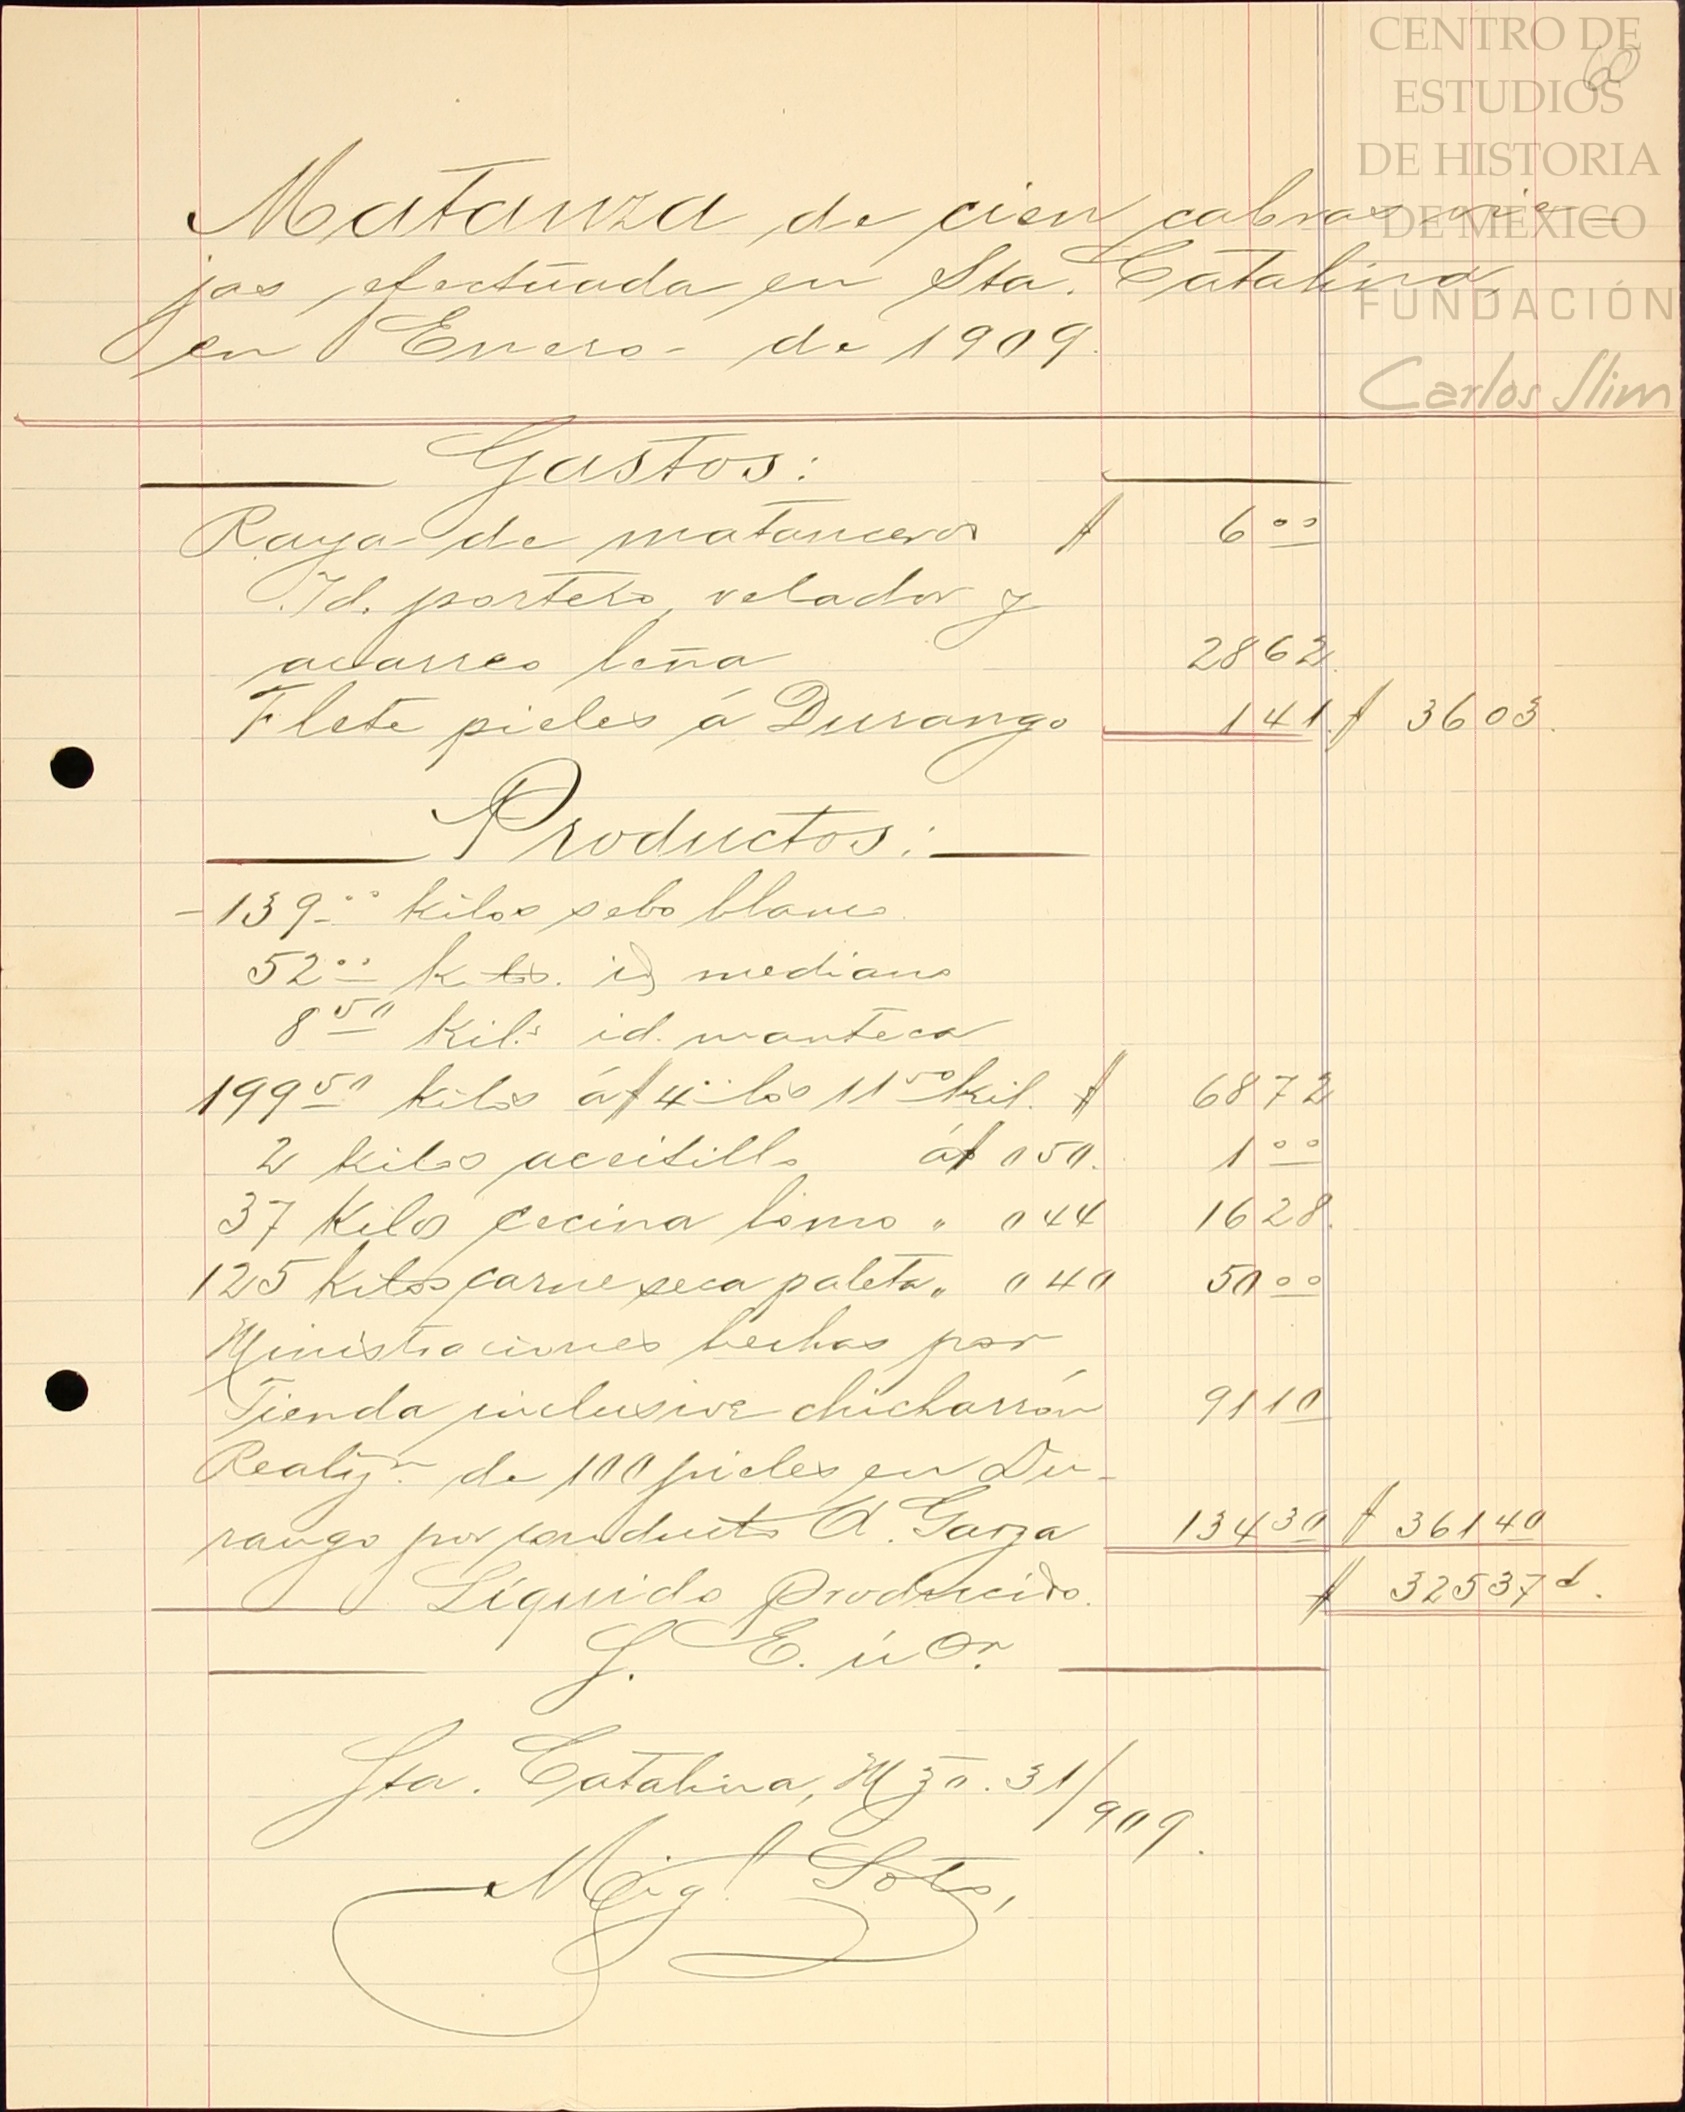 CENTRO DE
ESTUDIOS
DE HISTORIA
DE MÉXICO
FUNDACIÓN
Carlos Slim
60
Matanza de cien cabras vie-
jas efectuada en Sta. Catalina,
en Enero- de 1909.
Gastos:
Raya de matanceros $ 6 00
Id. portero, velador y
acarreo leña 28 62
Flete pieles á Durango 1 41 $ 36 03.
Productos:
139 00 kilos sebo blanco.
52 00 klos. id mediano
8 50 kil.s id. manteca
199 50 kilos á $ 4 00 los 11 50 kil. $ 68 72
2 kilos aceitillo á $ 0 50. 1 00
37 Kilos cecina lomo " 0 44 16 28.
125 kilos carne seca paleta " 0 40 50 00
Ministraciones hechas por
Tienda inclusive chicharrón 91 10
Realizn. de 100 pieles en Du-
rango por conducto A. Garza 134 30 $ 361 40
Líquido Producido. $ 325 37
S. E. ú On.
Sta. Catalina, Mzo. 31/909.
Migl. Soto,